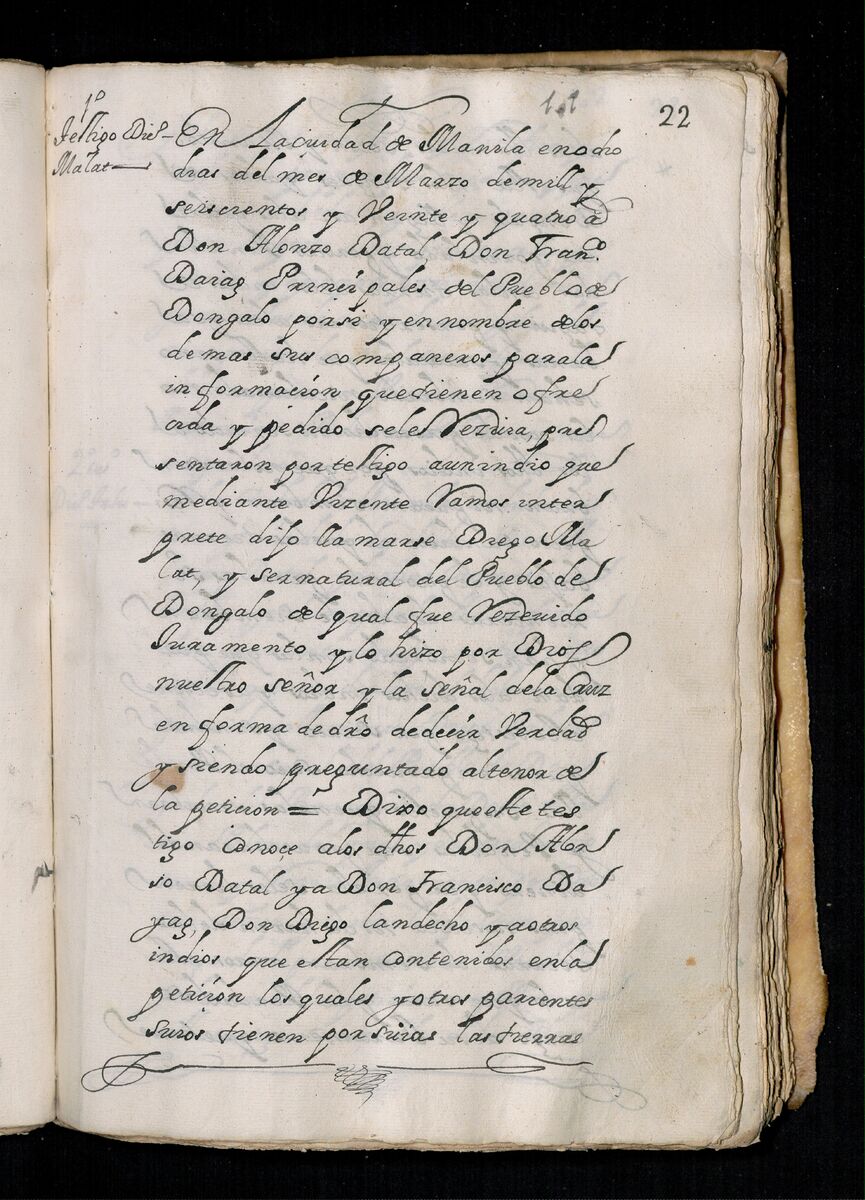 22
1º
Testigo Diº
Malat
En La ciudad de Manila en ocho
dias del mes de Marzo de mill y
seiscientos y Veinte y quatro ad
Don Alonzo Datal, Don Franº.
Daiag Principales del Pueblo de
Dongalo por si y en nombre de los
demas sus companeros para la
informacion que tienen ofre
cida y pedido se le Rezviva, pre
sentaron por testigo a un indio que
mediante Vizente Ramos inter
prete dijo llamarse Diego Ma
lat, y ser natural del Pueblo de
Dongalo del qual fue Rezevido
Juramento y lo hizo por Dios
nuestro señor y la señal de la Cruz
en forma de dro de decir Verdad
y siendo preguntado al tenor de
la peticion = Dixo que este tes
tigo conoçe a los dhos Don Alon
so Datal y a Don Francisco Da
yag, Don Diego landecho y a otros
indios que estan contenidos en la
peticion los quales y otros parientes
suios tienen por suias las tierras